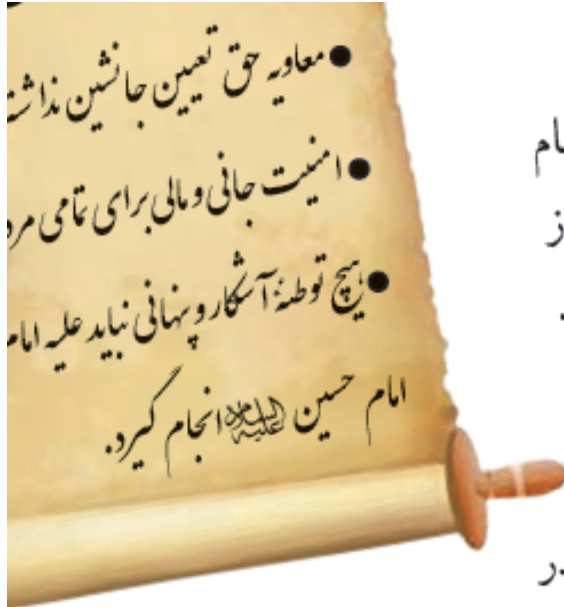 معاویه حق تعیین جانشین نداشت
ام
امنیت جانی و مالی برای تمامی مرد
ز
هیچ توطئهٔ آشکار و پنهانی نباید علیه امام
امام حسین علیه‌السلام انجام گیرد.
در